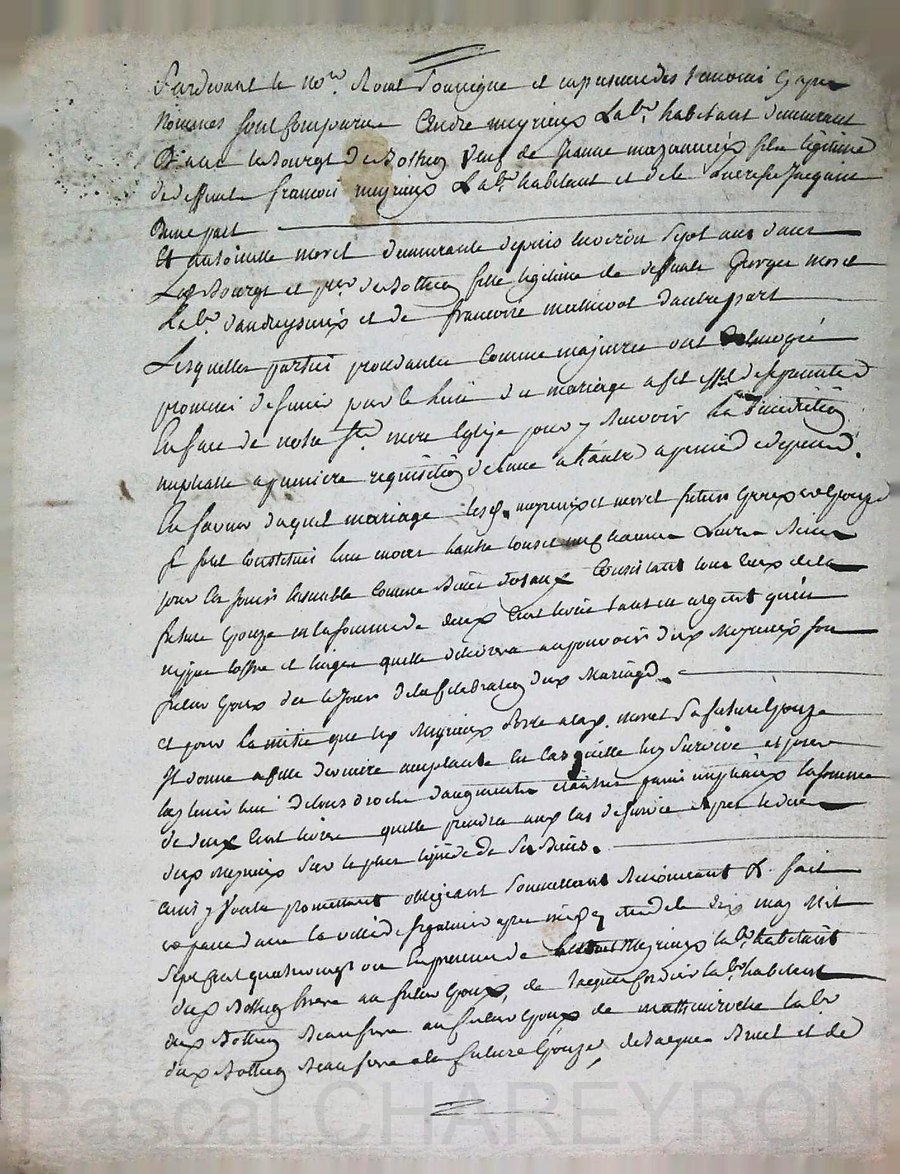 Pardevant le no.re Royal soussigne et en presence des temoins cy apres
Nommes sont comparus Andre meyrieux Lab.r habitant demeurant
Dans le bourgt de Botheon veuf de Jeanne mazancieux fils legitime
de deffunt francois meyrieux Lab.r habitant et de
Dune part
Et antoinette moret demeurante depuis environ sept ans dans
Led Bourgt et p.sse de Botheon fille legitime de deffunt George moret
Lab.r dandrezieux et de francoise mathevot dautre part
Lesquelles parties procedantes comme majeures ont
promis de sunir par le lien du mariage a cet effet de se presenter
En face de notre s.te mere Eglise pour y Recevoir la Benediction
nuptiale a premiere requisition de lune a lautre a peine de depend.
En faveur duquel mariage lesd. meyrieux et moret futurs Epoux et Epouze
se sont constitues tous et uns chacuns Leurs Biens
pour en jouir ensemble comme Biens dotaux Consistant tous ceux de la
future Epouze en la somme de deux Cent livres tant en argent quen
nippes coffre et linges quelle delivrera au pouvoir dud Meyrieux son
futur Epoux des le Jour de la Celebration dud Mariage.
et pour Lamitie que led Meyrieux Porte a lad. moret sa future Epouze
Il donne a cette derniere acceptante En Cas quelle luy Survive
daugment la somme
de deux Cent livres quelle prendra aud Cas de survie apres le deces
dud Meyrieux sur le plus liquide de ses Biens.
ainsi voulu promettant obligeant soumettant Renoncant &. fait
et passe dans la ville de apres midy le dix may Mil
Sept Cent quatre vingt En presence de Meyrieux lab.r habitant
dud Botheon frere au futur Epoux, de Jacques lab.r habitant
dud Botheon Beau frere au futur Epoux de mathieu roche lab.r
dud Botheon Beau frere a la future Epouze, de Jacques Brunet et de
Pascal CHAREYRON